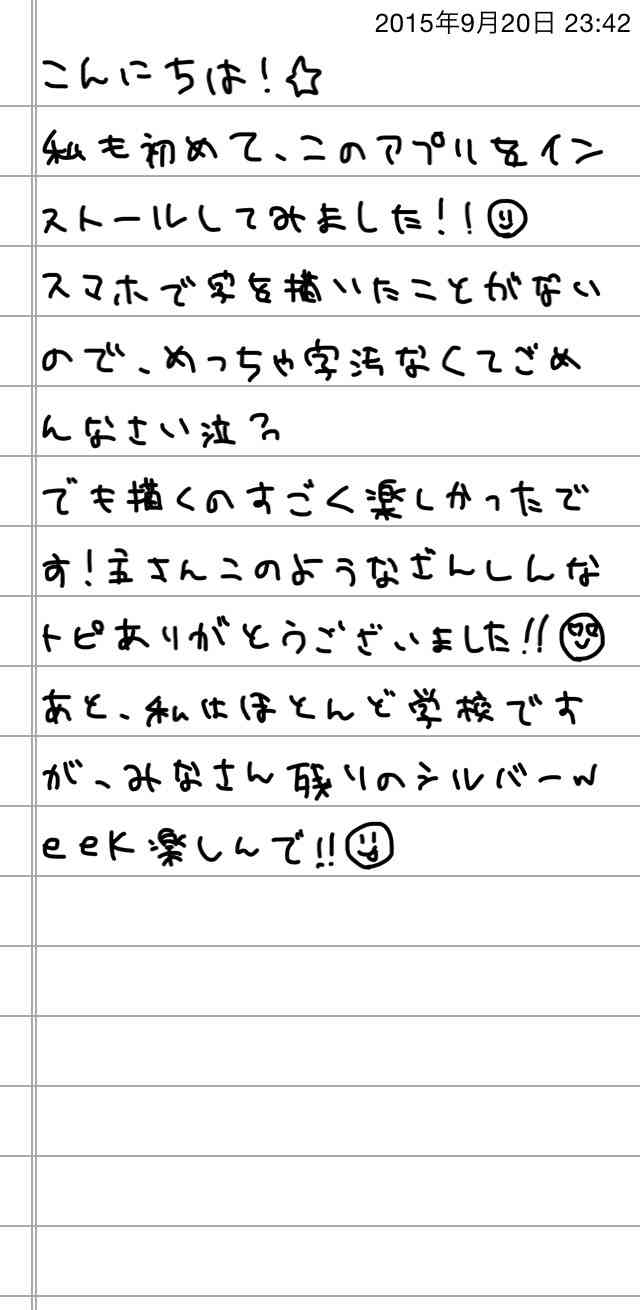 2015年9月20日 23:42
こんにちは！☆
私も初めて、このアプルをイン
ストールしてみました！！
スマホで字を描いたことがない
ので、めっちゃ字汚なくてごめ
んなさい泣
でも描くのすごく楽しかったで
す！主さんこのようなざんしんな
トピありがとうございました!!
あと、私はほとんど学校です
が、みなさん残りのシルバーw
eek楽しんで!!